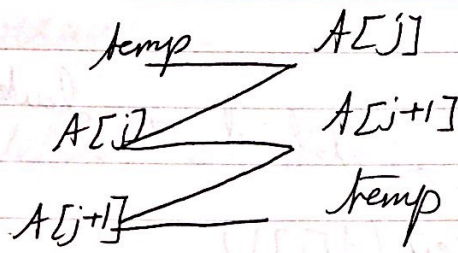 temp A[j]
A[j] A[j+1]
A[j+1] temp